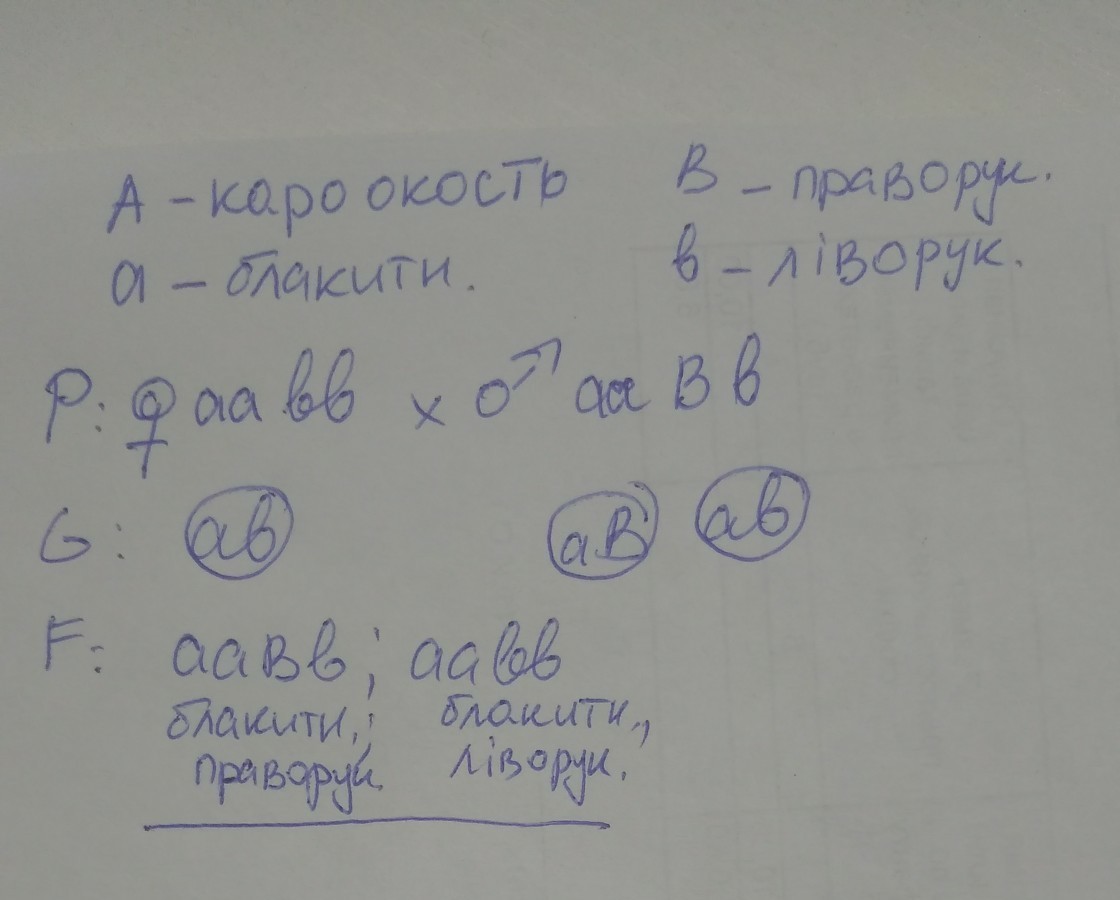 А - кароокость В - праворук.
а - блакитн. в - ліворук.
Р: ♀ аа вв × ♂ аа В в
G: ав аВ ав
F: ааВв; аавв
блакитн.; блакитн.,
праворук. ліворук.